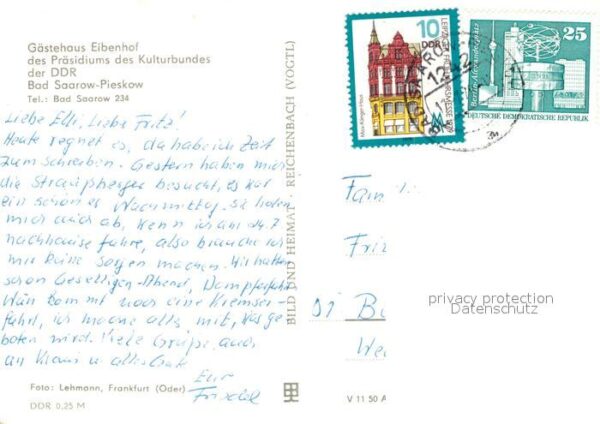 Gästehaus Eibenhof
des Präsidiums des Kulturbundes
der DDR
Bad Saarow-Pieskow
Tel.: Bad Saarow 234
Liebe Elli, Liebe Fritz!
Heute regnet es, da habe ich Zeit
zum schreiben. Gestern haben mich
die Strausberger besucht, es war
ein schöner Nachmittag. Sie holen
mich auch ab, wenn ich am 24.7
nachhause fahre, also brauche ich
mir keine Sorgen machen. Wir hatten
schon Geselligen-Abend, Dampferfahrt
Nun kommt noch eine Kremser-
fahrt, ich mache alles mit, was ge
boten wird. Viele Grüße auch
an Klaus u alles Gute
Eure
Friedel
Foto: Lehmann, Frankfurt (Oder)
DDR 0,25 M
BILD UND HEIMAT · REICHENBACH (VOGTL)
V 11 50 A
10
DDR
LEIPZIGER FRÜHJAHRSMESSE 1979
Max-Klinger-Haus
MM
25
Berlin, Alexanderplatz
DEUTSCHE DEMOKRATISCHE REPUBLIK
1242
BAD SAAROW
Fam
Fri
We
privacy protection
Datenschutz